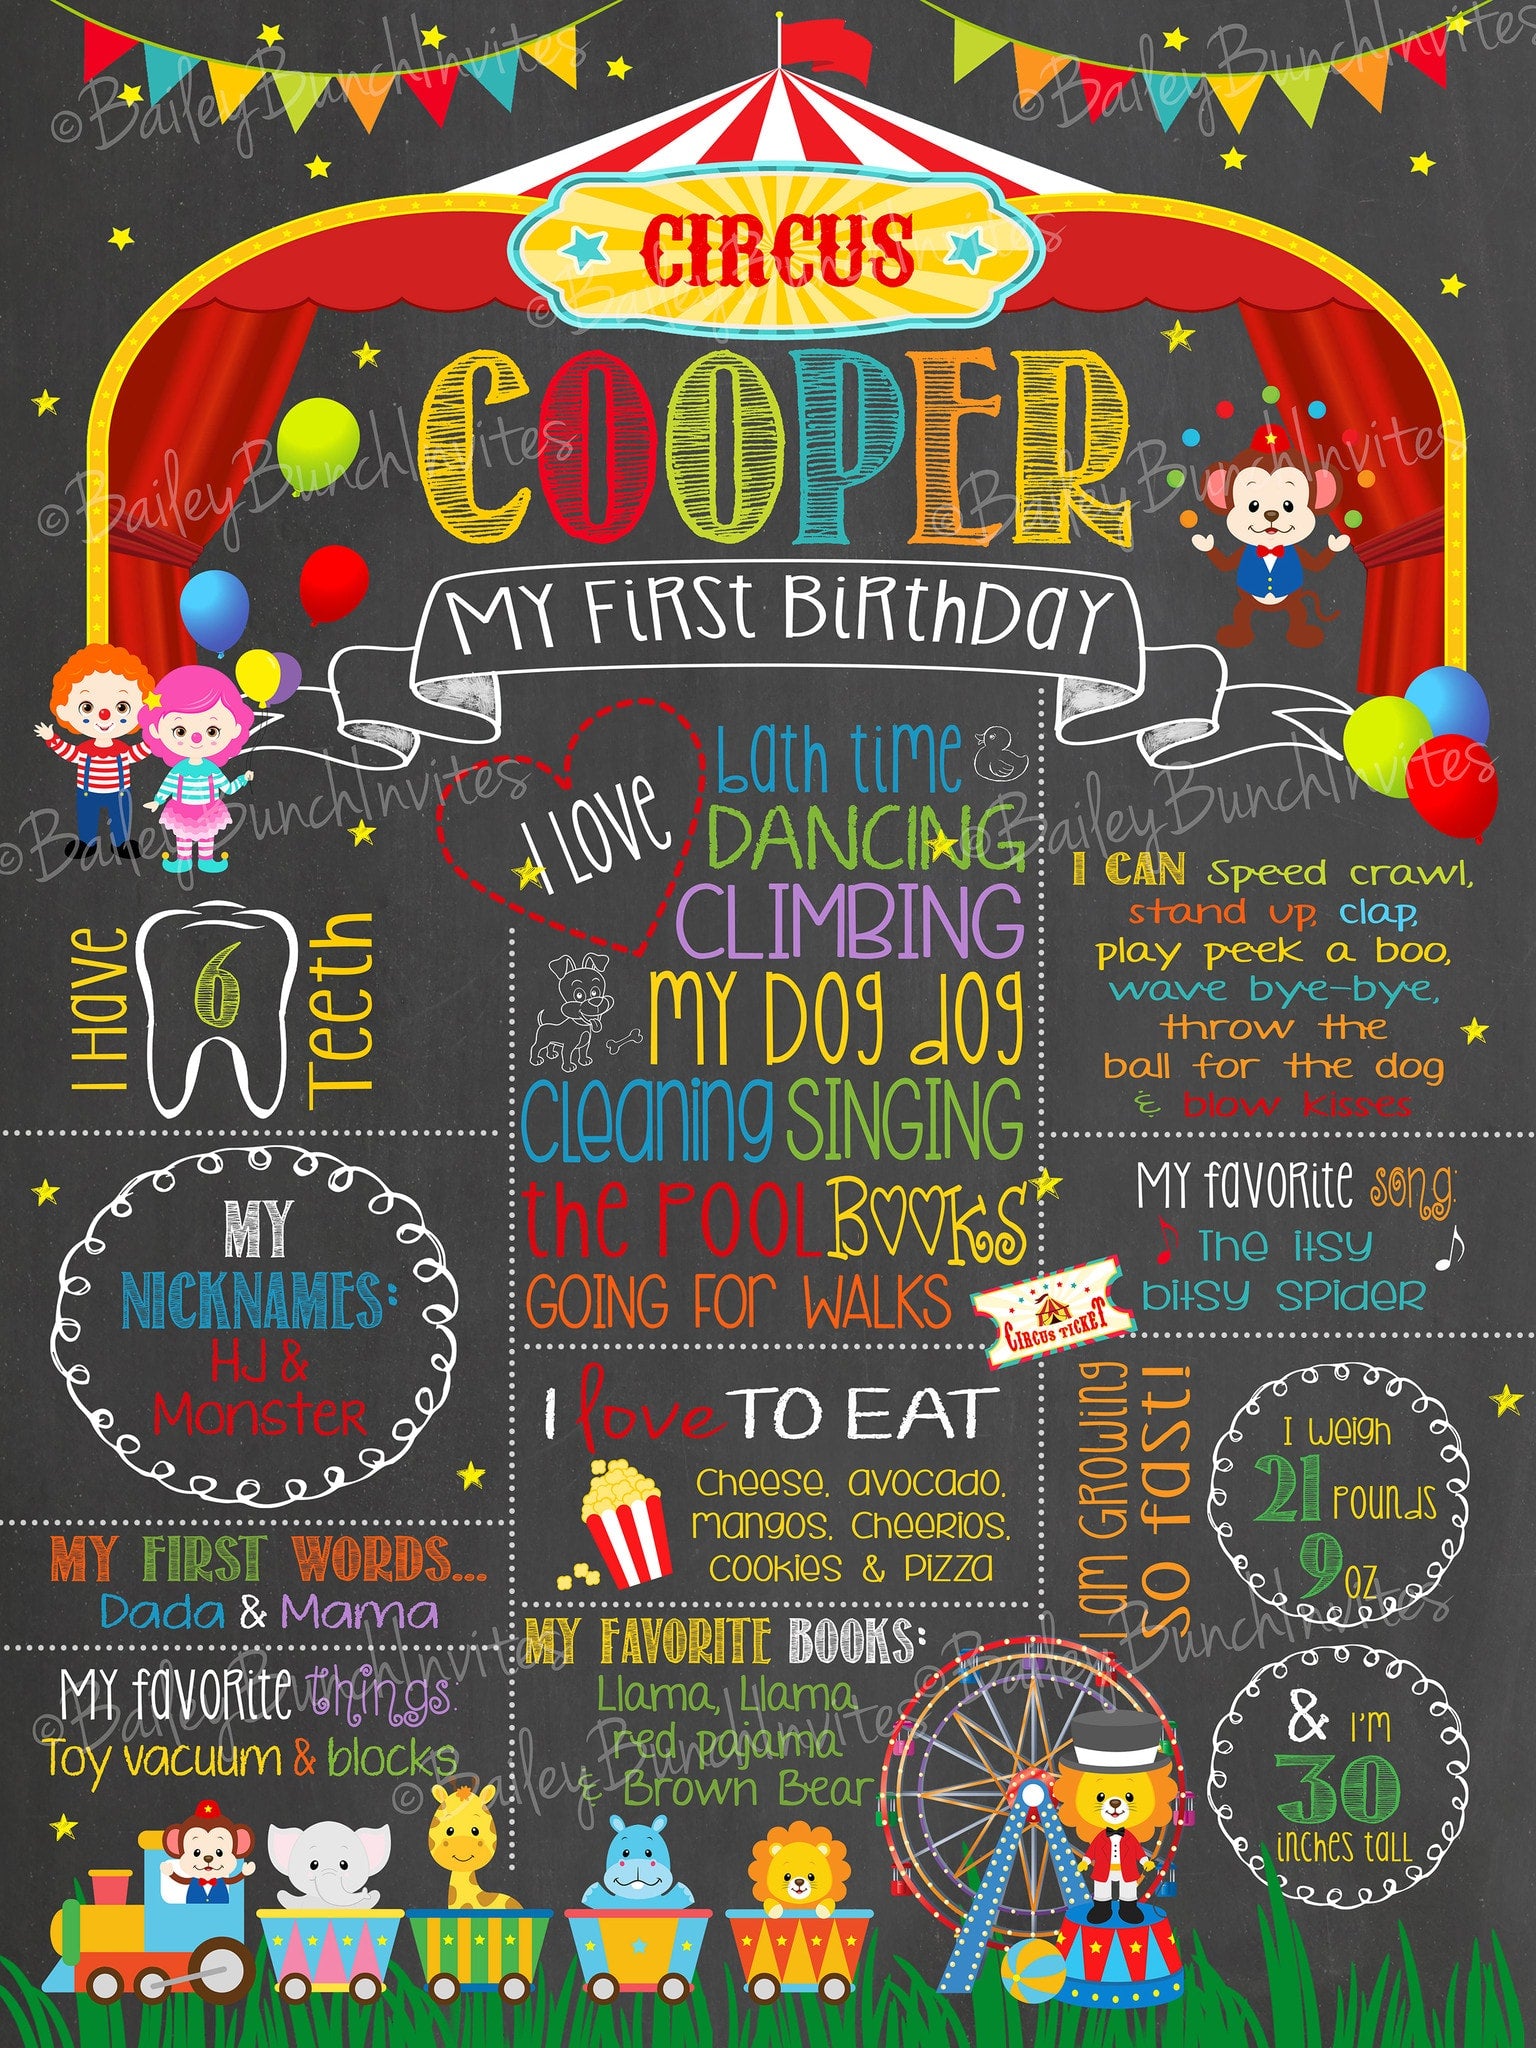 ©BaileyBunchInvites
©BaileyBunchInvites
CIRCUS
©BaileyBunchInvites
COOPER
©BaileyBunchInvites
©BaileyBunchInvites
MY FIRST BIRTHDAY
©BaileyBunchInvites
©BaileyBunchInvites
I LOVE
bath time
DANCING
CLIMBING
MY DOG JOG
cleaning SINGING
the POOL BOOKS
GOING FOR WALKS
I Have
6
Teeth
MY
NICKNAMES:
HJ &
Monster
MY FIRST WORDS...
Dada & Mama
MY favorite things:
Toy vacuum & blocks
I love TO EAT
Cheese, avocado,
mangos, Cheerios,
cookies & pizza
MY FAVORITE BOOKS:
Llama, Llama
red pajama
& Brown Bear
I CAN speed crawl,
stand up, clap,
play peek a boo,
wave bye-bye,
throw the
ball for the dog
& blow kisses
MY favorite song:
The itsy
bitsy spider
CIRCUS TICKET
I am GROWING
so fast!
I weigh
21 pounds
9 oz
& I'm
30
inches tall
©BaileyBunchInvites
©BaileyBunchInvites
©BaileyBunchInvites